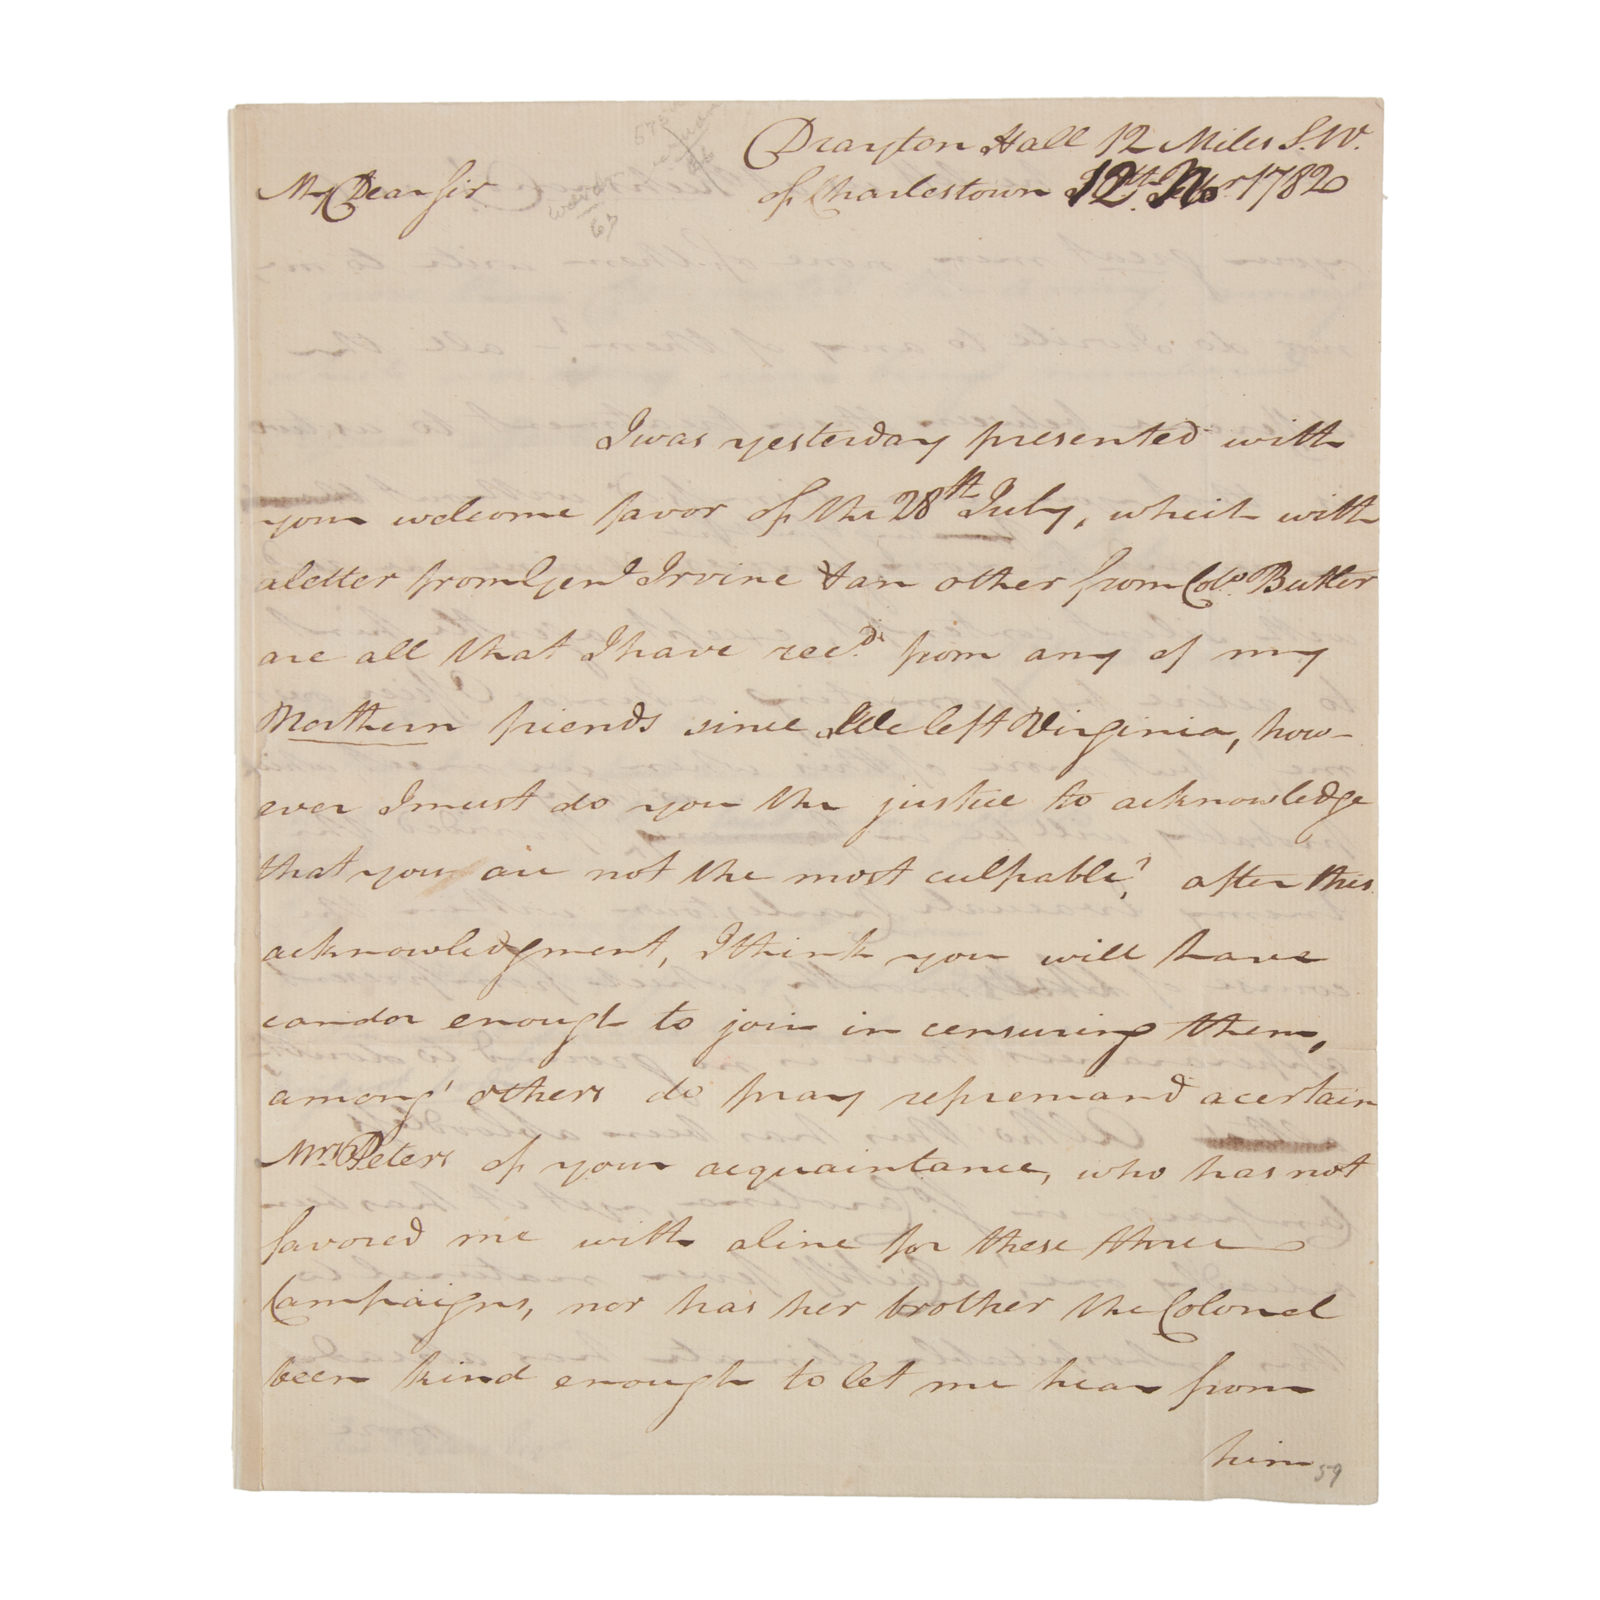 Drayton Hall 12 Miles S.W.
My Dear Sir
of Charlestown 12th. Novr 1782
I was yesterday presented with
your welcome favor of the 28th July, which with
a letter from Genl Irvine & an other from Colo. Butler
are all that I have recd. from any of my
Northern friends since We left Virginia, how-
ever I must do you the justice to acknowledge
that you are not the most culpable! after this
acknowledgment, I think you will have
candor enough to join in censuring them,
among' others do pray repremand a certain
Mrs. Peters of your acquaintance, who has not
favored me with a line for these three
Campaigns, nor has her brother the Colonel
been kind enough to let me hear from
him
59